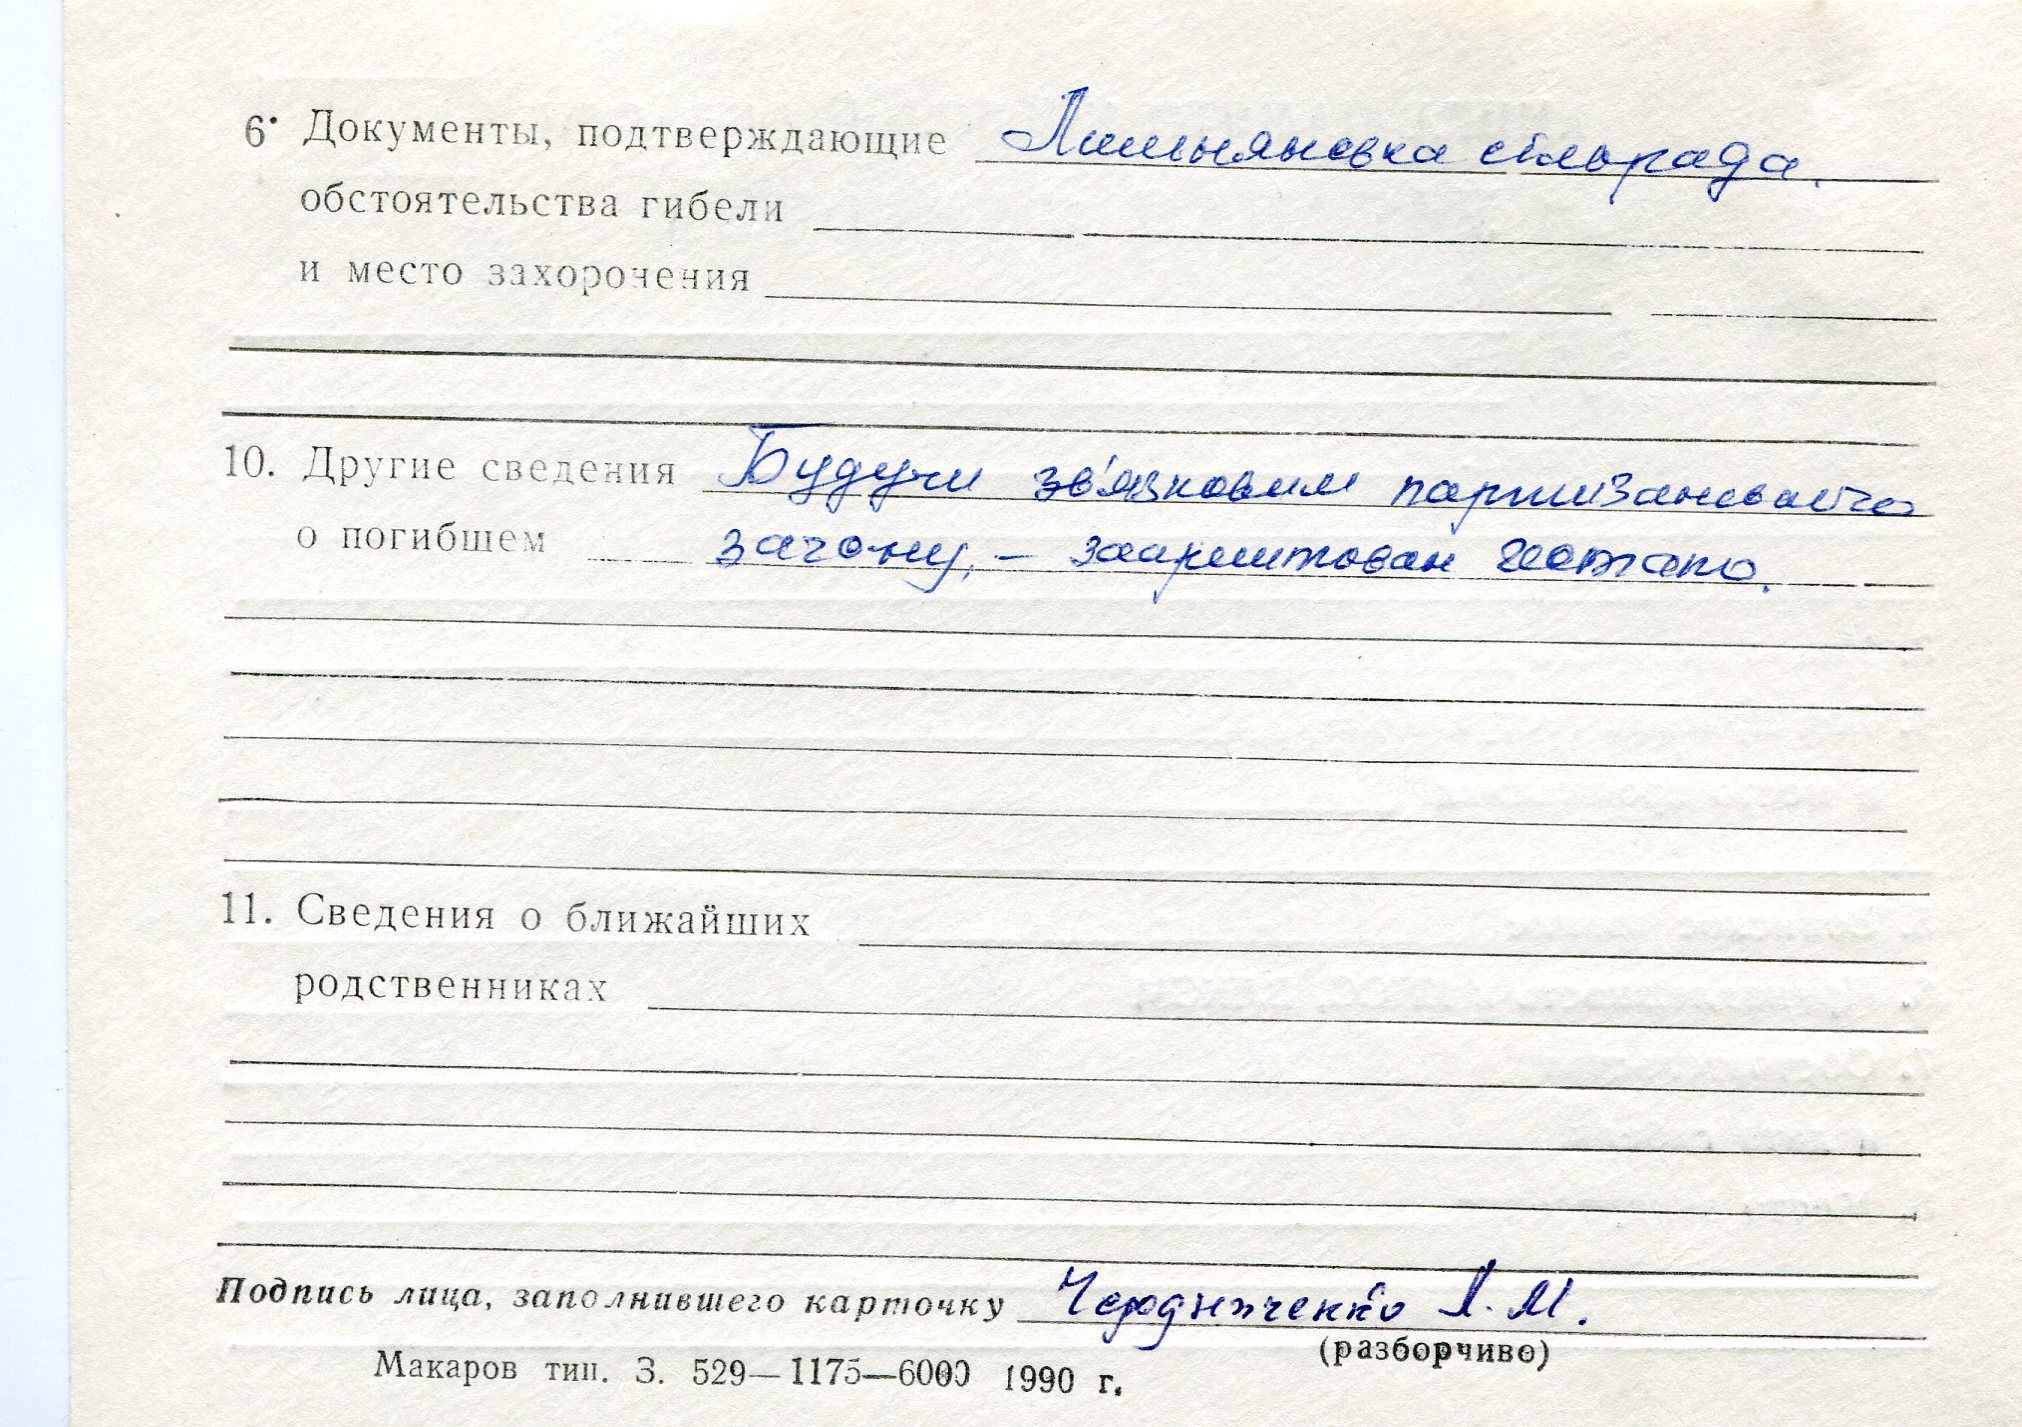 6. Документы, подтверждающие сільрада.
обстоятельства гибели
и место захоронения
10. Другие сведения Будучи зв'язковим партизанського
о погибшем загону, – заарештован гестапо.
11. Сведения о ближайших
родственниках
Подпись лица, заполнившего карточку Л. М.
(разборчиво)
Макаров тип. З. 529—1175—6000 1990 г.